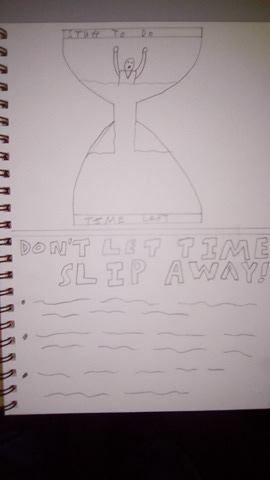 STUFF TO DO
TIME LEFT
DON'T LET TIME
SLIP AWAY!